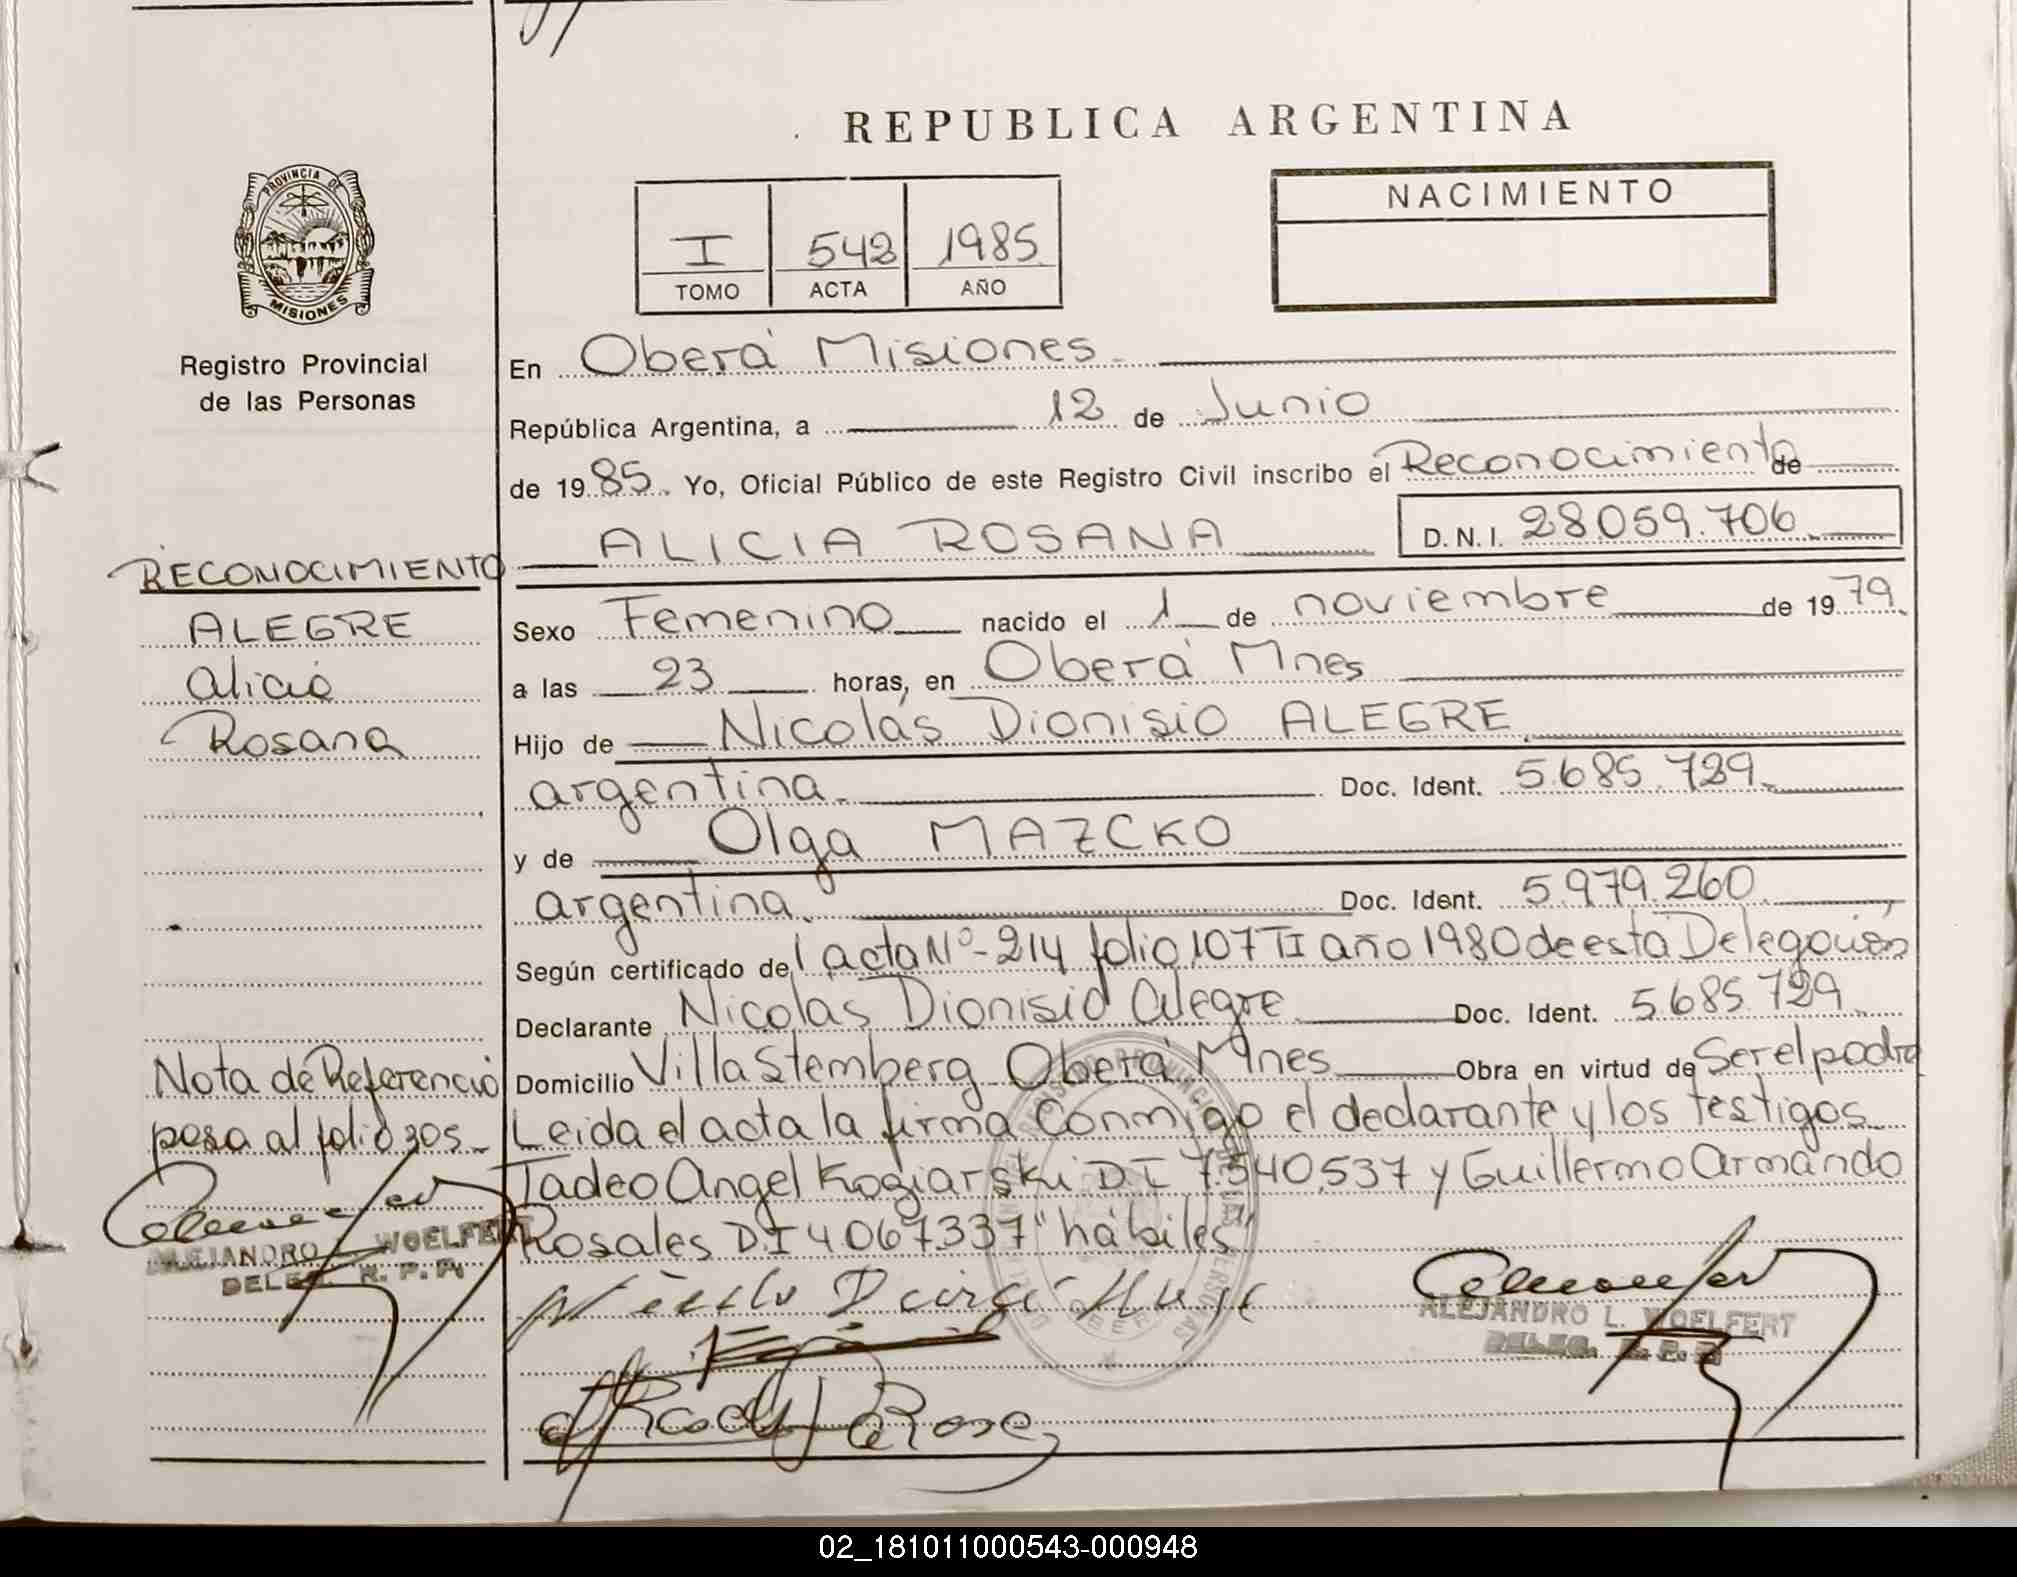 REPUBLICA ARGENTINA
PROVINCIA DE
MISIONES
Registro Provincial
de las Personas
I 542 1985
TOMO ACTA AÑO
NACIMIENTO
En Oberá Misiones
República Argentina, a 12 de Junio
de 1985. Yo, Oficial Público de este Registro Civil inscribo el Reconocimiento de
ALICIA ROSANA D.N.I. 28059.706
Sexo Femenino nacido el 1 de noviembre de 1979
a las 23 horas, en Oberá Mnes
Hijo de Nicolás Dionisio ALEGRE
argentina. Doc. Ident. 5.685.729
y de Olga MAZCKO
argentina. Doc. Ident. 5.979.260
Según certificado del acta Nº-214 folio 107 TI año 1980 de esta Delegación
Declarante Nicolás Dionisio Alegre Doc. Ident. 5.685.729
Domicilio Villa Stemberg Oberá Mnes Obra en virtud de Ser el padre
Leida el acta la firma Conmigo el declarante y los testigos
Tadeo Angel Koziarski D I 7.540.537 y Guillermo Armando
Rosales D.I 4067.337 "hábiles"
RECONOCIMIENTO
ALEGRE
Alicia
Rosana
Nota de Referencia
pasa al folio 305
ALEJANDRO L. WOELFERT
DELEG. R. P. P.
ALEJANDRO L. WOELFERT
DELEG. R. P. P.
02_181011000543-000948